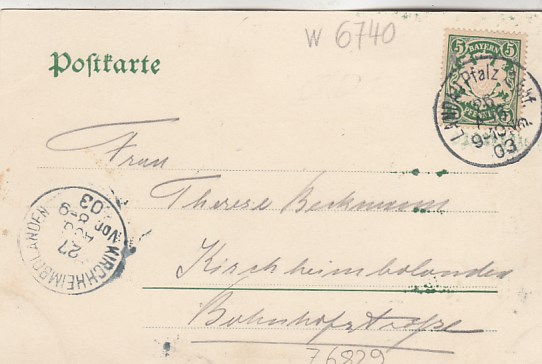 W 6740
Postkarte
5 BAYERN 5
LANDAU Pfalz
26
9-10
03
Frau
Therese Beckmann
Kirchheimbolanden
Bahnhofstraße
KIRCHHEIMBOLANDEN
27
AUG
Vor. 8-9
03
76829